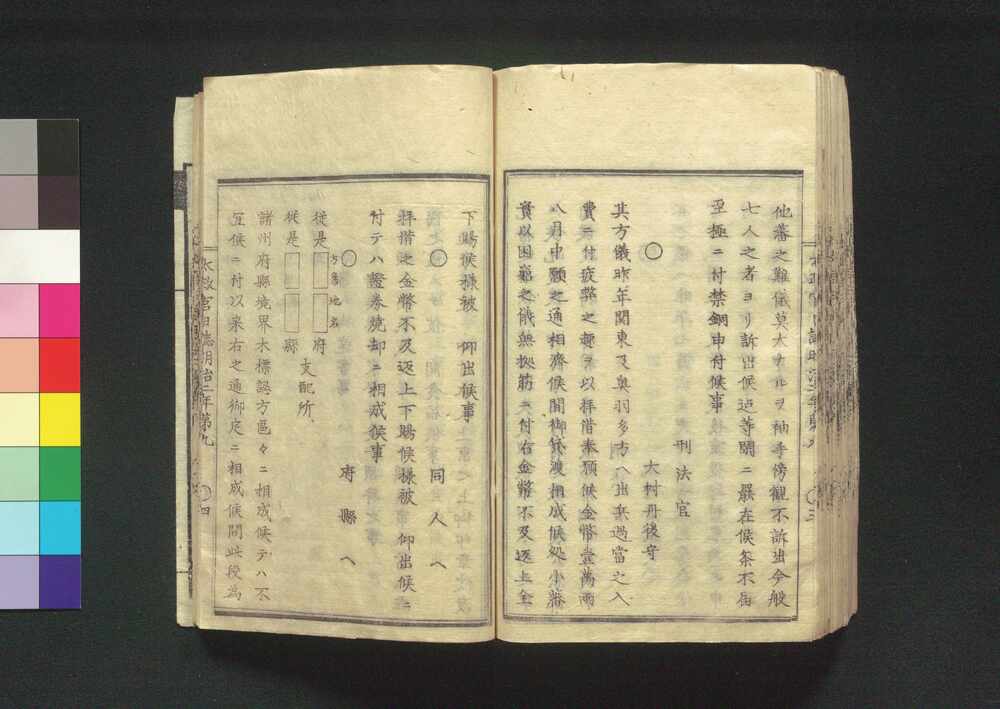 他藩之難儀莫大ナルヲ袖手傍観不訴出今般
七人之者ヨリ訴出候迄等閑ニ罷在候条不届
至極ニ付禁錮申付候事
刑法官
○
大村丹後守
其方儀昨年関東及奥羽多方ヘ出兵過當之入
費ニ付疲弊之趣ヲ以拝借奉願候金幣壹萬両
八月中願之通相済候間御貸渡相成候処小藩
實以困窮之儀無拠筋ニ付右金幣不及返上全
下賜候様被 仰出候事
○ 同人ヘ
拝借之金幣不及返上下賜候様被 仰出候ニ
付テハ證券焼却ニ相成候事
○ 府縣ヘ
従是 府
支配所
従是 縣
諸州府縣境界木標認方區々ニ相成候テハ不
宜候ニ付以来右之通御定ニ相成候間此段為
太政官日誌明治二年第九
四